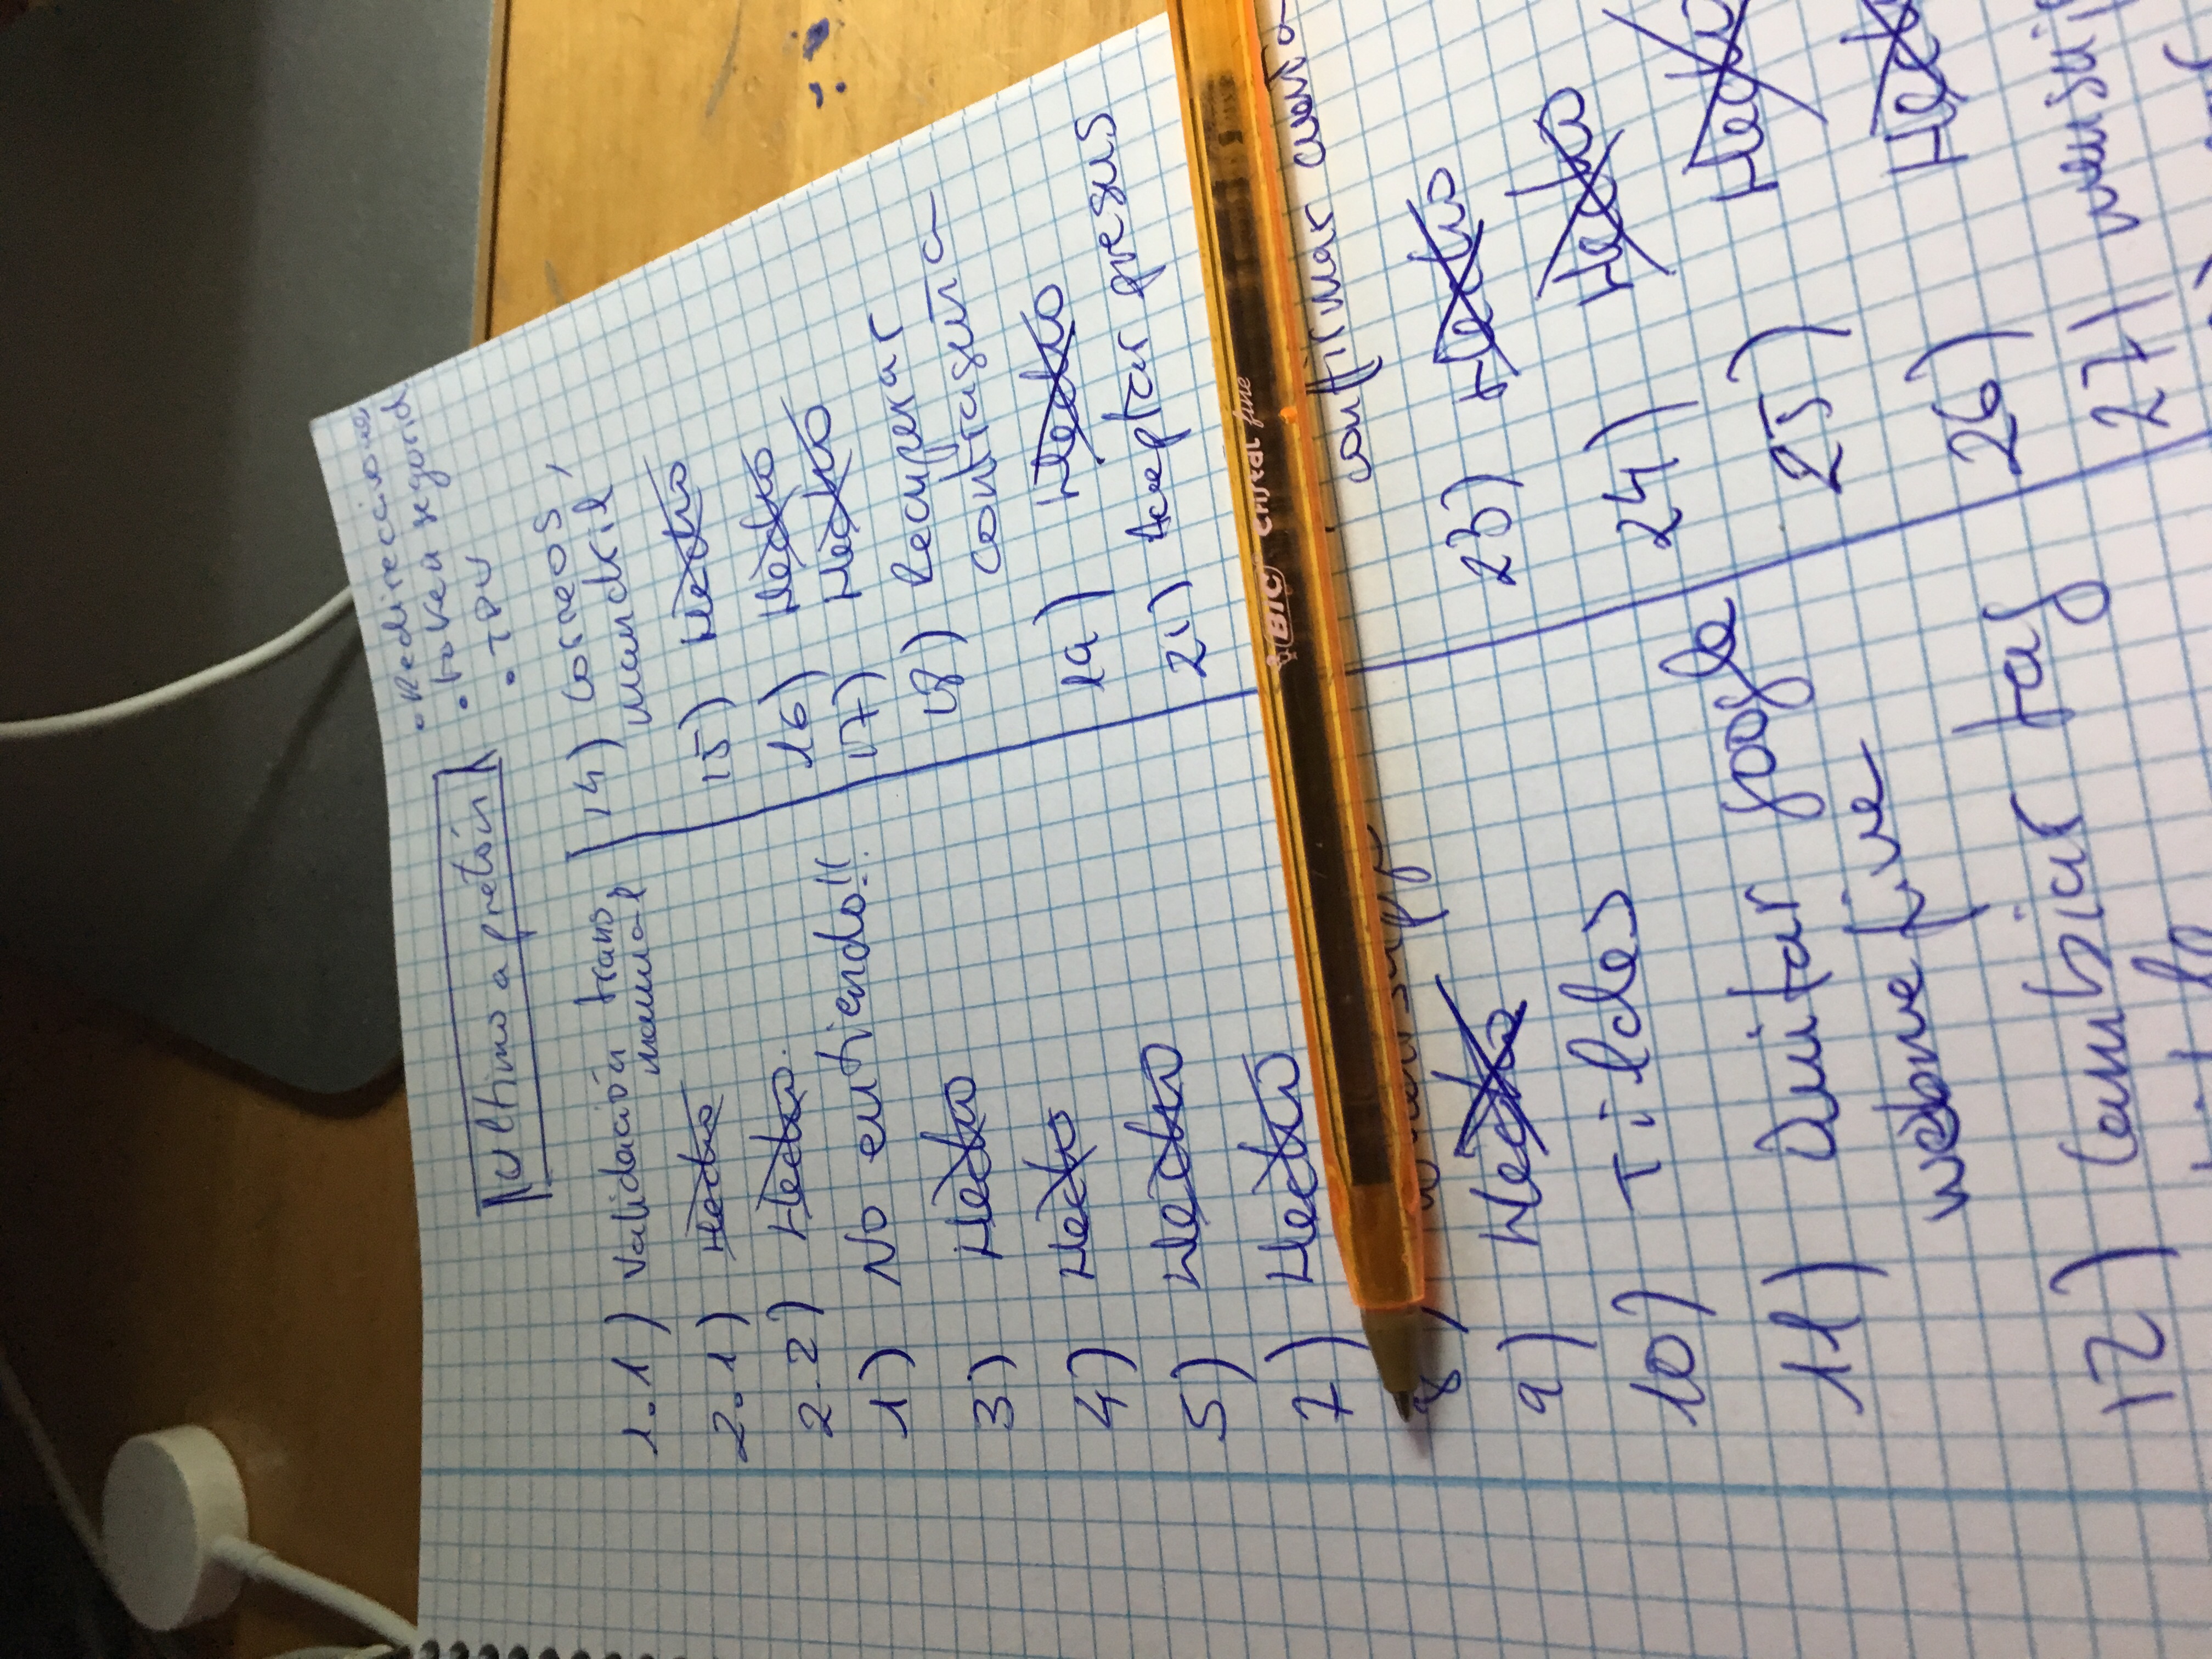 Ultimo apretón
• Redirecciones
• token segurid
• TPV
1.1) Validación trans.
manual
2.1) Hecho
2.2) Hecho.
1) No entiendo!!
3) Hecho
4) Hecho
5) Hecho
7) Hecho
8) whatsapp
9) Hecho
10) Tildes
11) Quitar google
12) Cambiar tag
14) Correos,
mandril
15) Hecho
16) Hecho
17) Hecho
18) Recuperar
contraseña
19) Hecho
21) Aceptar presus
BIC Cristal fine
confirmar cuenta
23) Hecho
24) Hecho
25) Hecho
26) Hecho
27) mensaj